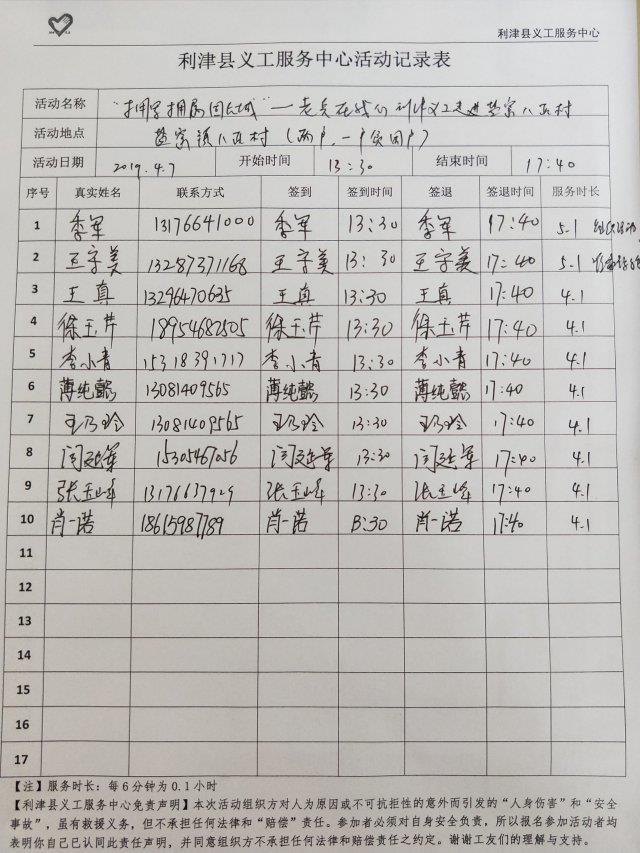 利津县义工服务中心
利津县义工服务中心活动记录表
活动名称 "拥军拥属团圆城"—老兵在我们利津义工走进盐窝八西村
活动地点 盐窝镇八西村(两户,一户贫困户)
活动日期 2019.4.7 开始时间 13:30 结束时间 17:40
序号 真实姓名 联系方式 签到 签到时间 签退 签退时间 服务时长
1 季军 13176641000 季军 13:30 季军 17:40 5.1
2 王字美 13287371168 王字美 13:30 王字美 17:40 5.1
3 王真 13296470635 王真 13:30 王真 17:40 4.1
4 徐玉芹 18954682505 徐玉芹 13:30 徐玉芹 17:40 4.1
5 李小青 15318391717 李小青 13:30 李小青 17:40 4.1
6 薄纯懿 13081409565 薄纯懿 13:30 薄纯懿 17:40 4.1
7 王乃玲 13081409565 王乃玲 13:30 王乃玲 17:40 4.1
8 闫延军 15305467056 闫延军 13:30 闫延军 17:40 4.1
9 张玉峰 13176637929 张玉峰 13:30 张玉峰 17:40 4.1
10 肖一诺 18615987789 肖一诺 13:30 肖一诺 17:40 4.1
11
12
13
14
15
16
17
【注】服务时长:每6分钟为0.1小时
【利津县义工服务中心免责声明】本次活动组织方对人为原因或不可抗拒性的意外而引发的"人身伤害"和"安全
事故",虽有救援义务,但不承担任何法律和"赔偿"责任。参加者必须对自身安全负责,所以报名参加活动者均
表明你自己已认同此责任声明,并同意组织方不承担任何法律和赔偿责任之约定。谢谢工友们的理解与支持。